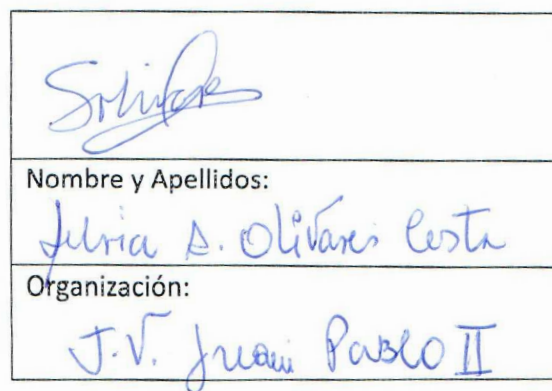 SOlivares
Nombre y Apellidos:
Silvia A. Olivares Costa
Organización:
J.V. Juan Pablo II